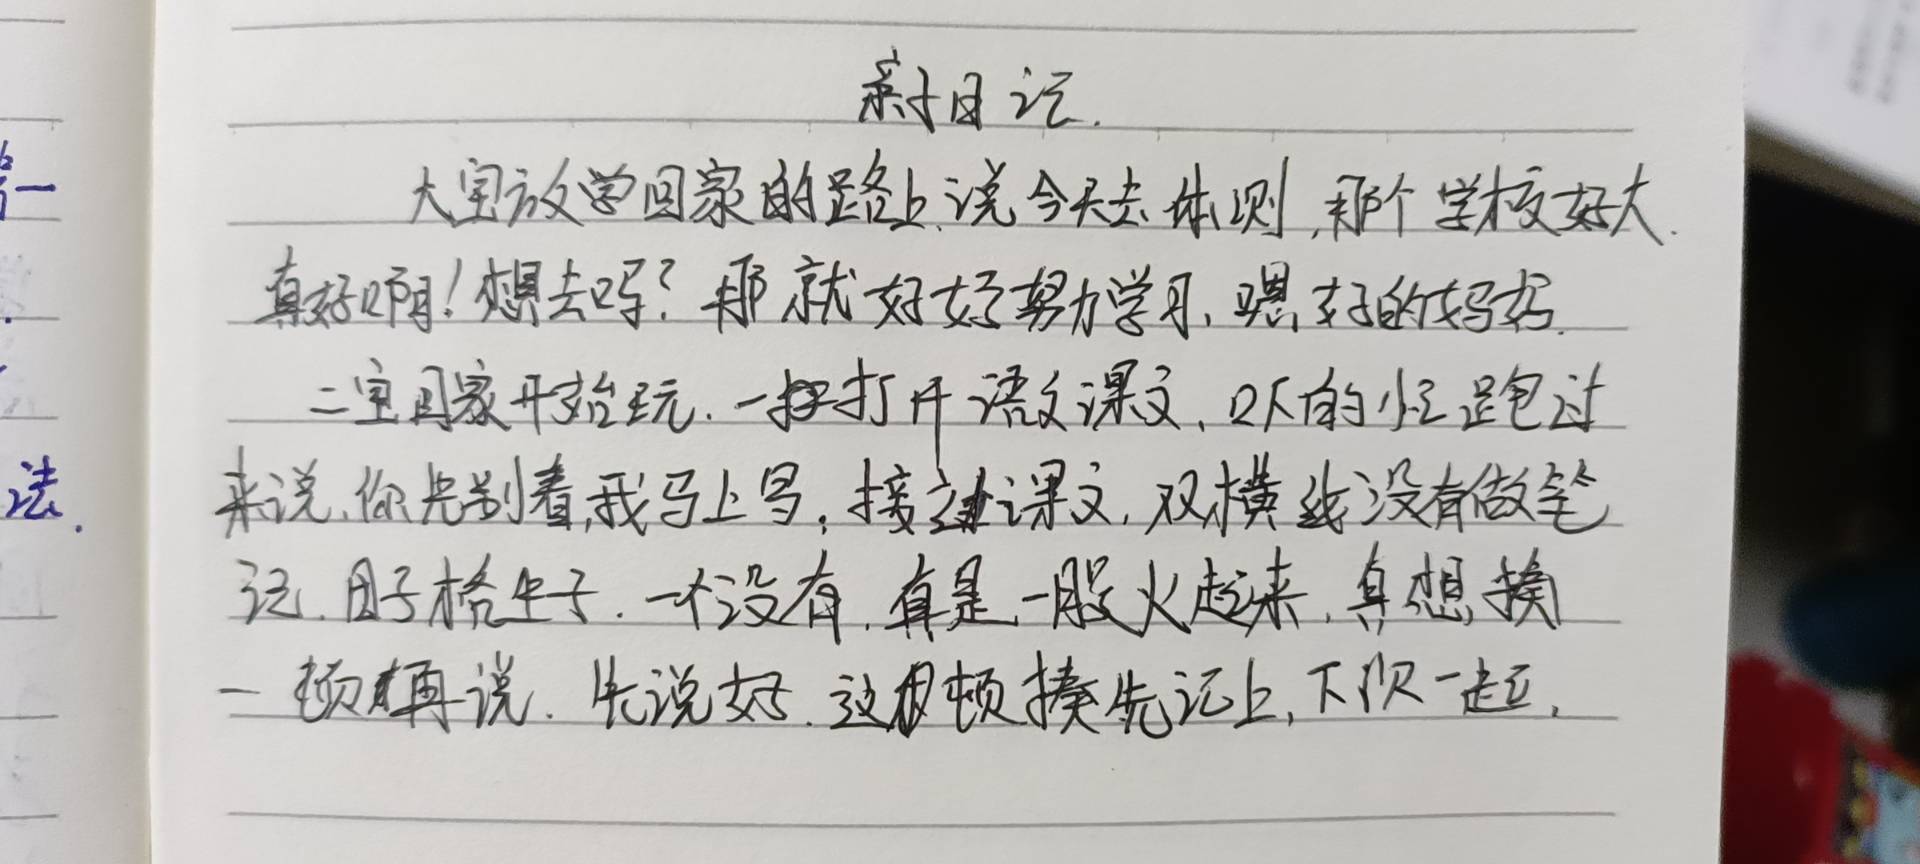 亲子日记.
大宝放学回家的路上,说今天去体测,那个学校好大.
真好啊!想去吗?那就好好努力学习,嗯,好的妈妈.
二宝回家开始玩.一打开语文课文,吓的忙跑过
来说,你先别看,我马上写,接过课文,双横线没有做笔
记.田子格生子.一个没有,真是一股火起来,真想揍
一顿再说.先说好.这顿揍先记上,下次一起,
一
法.